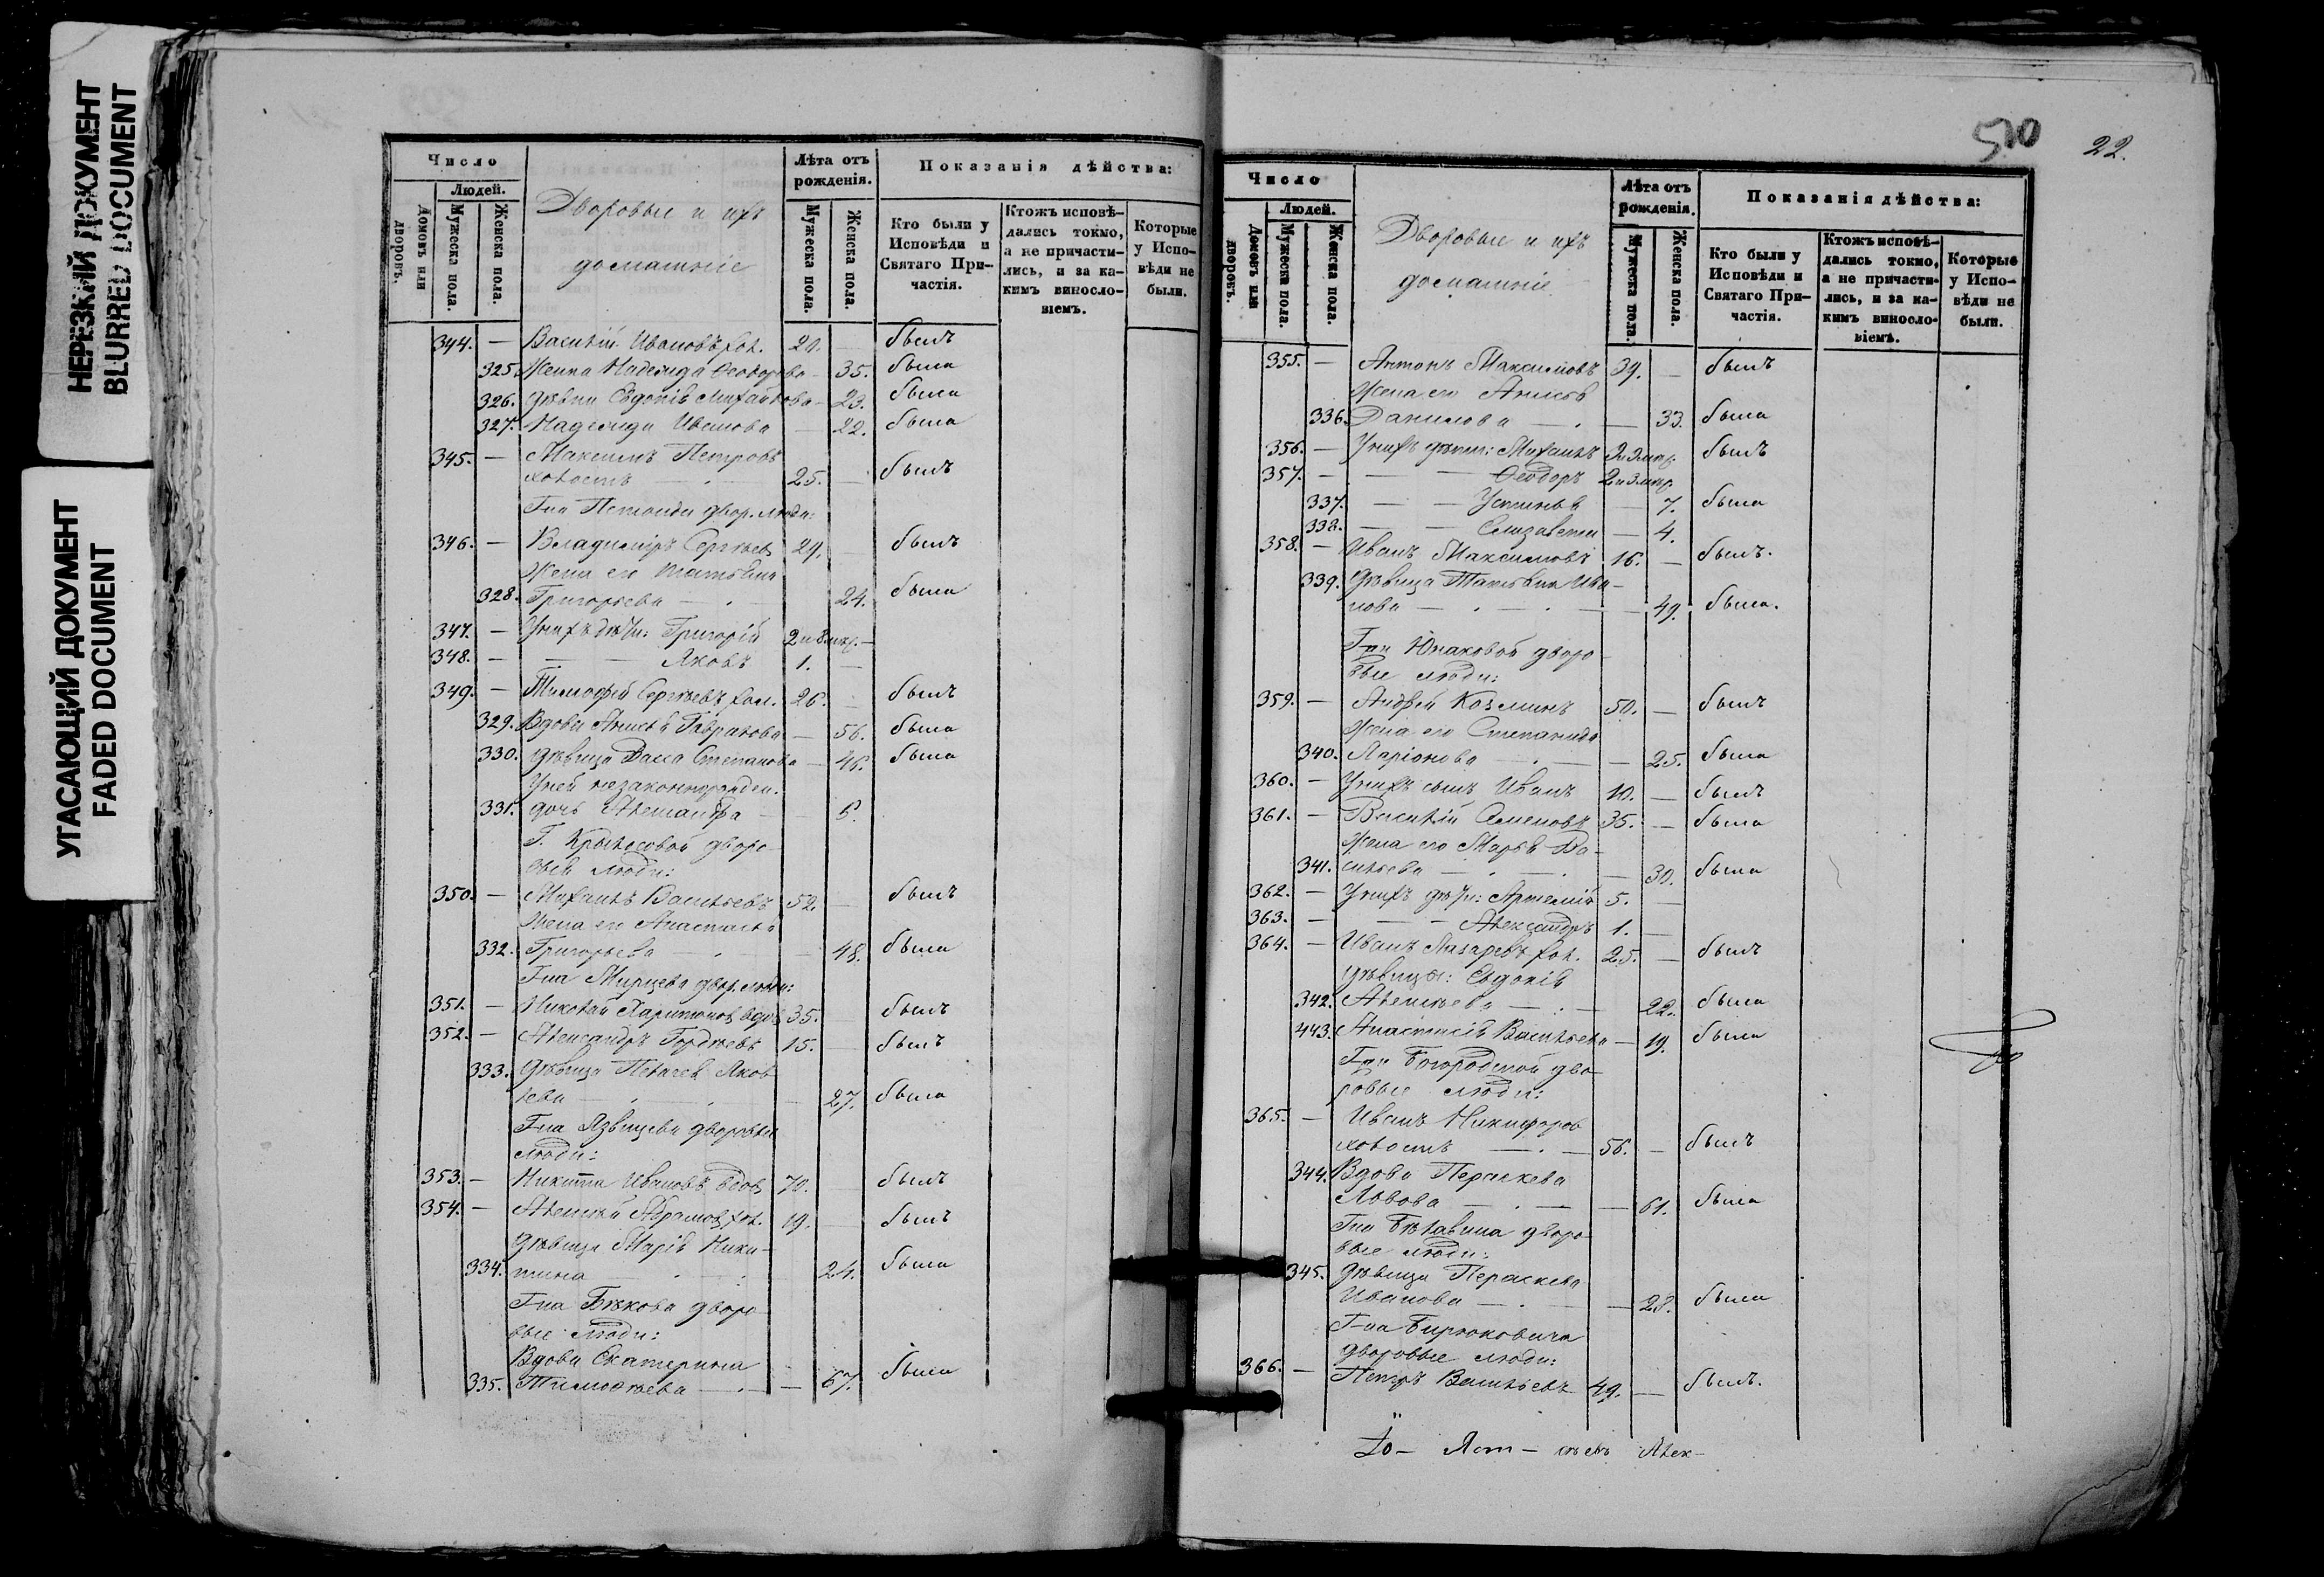 НЕРЕЗКИЙ ДОКУМЕНТ
BLURRED DOCUMENT
УГАСАЮЩИЙ ДОКУМЕНТ
FADED DOCUMENT
Число
Людей.
Домовъ или дворовъ.
Мужеска пола.
Женска пола.
Дворовые и ихъ
домашніе
Лѣта отъ рожденія.
Мужеска пола.
Женска пола.
Показанія дѣйства:
Кто были у Исповѣди и Святаго Причастія.
Ктожъ исповѣдались токмо, а не причастились, и за какимъ винословіемъ.
Которые у Исповѣди не были.
344. — Василій Ивановъ хол. 21. — былъ
325. Женка Надежда Ѳеодорова — 35. была
326. Дѣвки Евдокія Михайлова — 23. была
327. Надежда Иванова — 22. была
345. — Максимъ Петровъ
холостъ — 25. — былъ
Г-на двор. люди:
346. — Владиміръ Сергѣев 29. — былъ
Жена его Татьяна
328. Григорьева — 24. была
347. — У нихъ дѣти: Григорій 2 и 8 мѣс. —
348. — — — Яковъ 1. —
349. — Тимофей Сергѣевъ хол. 26. — былъ
329. Вдова Анисья Гаврилова — 56. была
330. Дѣвица Васса Степанова — 46. была
У ней незаконнорожден.
331. дочь Александра — 6.
Г. Крыловой дворо-
вые люди:
350. — Михаилъ Васильевъ 52. — былъ
Жена его Анастасья
332. Григорьева — 48. была
Г-на двор. люди:
351. — Николай Харитонов вдов 35. — былъ
352. — Александръ Гордѣевъ 15. — былъ
333. Дѣвица Пелагея Яков-
лева — 27. была
Г-на Язвицева дворовые
люди:
353. — Никита Ивановъ вдов 70. — былъ
354. — Алексѣй Абрамов хол. 19. — былъ
Дѣвица Марія Ники-
334. тина — 24. была
Г-на Бѣкова дворо-
вые люди:
Вдова Екатерина
335. Тимоѳеева — 67. была
510
22.
Число
Людей.
Домовъ или дворовъ.
Мужеска пола.
Женска пола.
Дворовые и ихъ
домашніе
Лѣта отъ рожденія.
Мужеска пола.
Женска пола.
Показанія дѣйства:
Кто были у Исповѣди и Святаго Причастія.
Ктожъ исповѣдались токмо, а не причастились, и за какимъ винословіемъ.
Которые у Исповѣди не были.
355. — Антонъ Максимовъ 39. — былъ
Жена его Анисья
336. Данилова — 33. была
356. — У нихъ дѣти: Михаилъ былъ
357. — — — Ѳеодоръ 2 и 3 мѣс.
337. — — Устинья — 7. была
338. — — Елизавета — 4.
358. — Иванъ Максимовъ 16. — былъ.
339. Дѣвица Татьяна Ива-
нова — 49. была.
Г-жи Юшковой дворо-
вые люди:
359. — Андрей Козминъ 50. — былъ
Жена его Степанида
340. Ларіонова — 25. была
360. — У нихъ сынъ Иванъ 10. — былъ
361. — Василій Семеновъ 35. — была
Жена его Марья Ва-
341. сильева — 30. была
362. — У нихъ дѣти: Артемій 5. —
363. — — — Александръ 1. —
364. — Иванъ Лазаревъ хол. 25. — былъ
Дѣвицы: Евдокія
342. Алексѣева — 22. была
443. Анастасія Васильева — 19. была
Г-жи дво-
ровые люди:
365. — Иванъ Никифоров
холостъ — 56. — былъ
344. Вдова Пераскева
Львова — 61. была
Г-на Бѣлавина дворо-
вые люди:
345. Дѣвица Пераскева
Иванова — 28. была
Г-на Бирюковича
дворовые люди:
366. — Петръ Васильевъ 49. — былъ.
Алек-